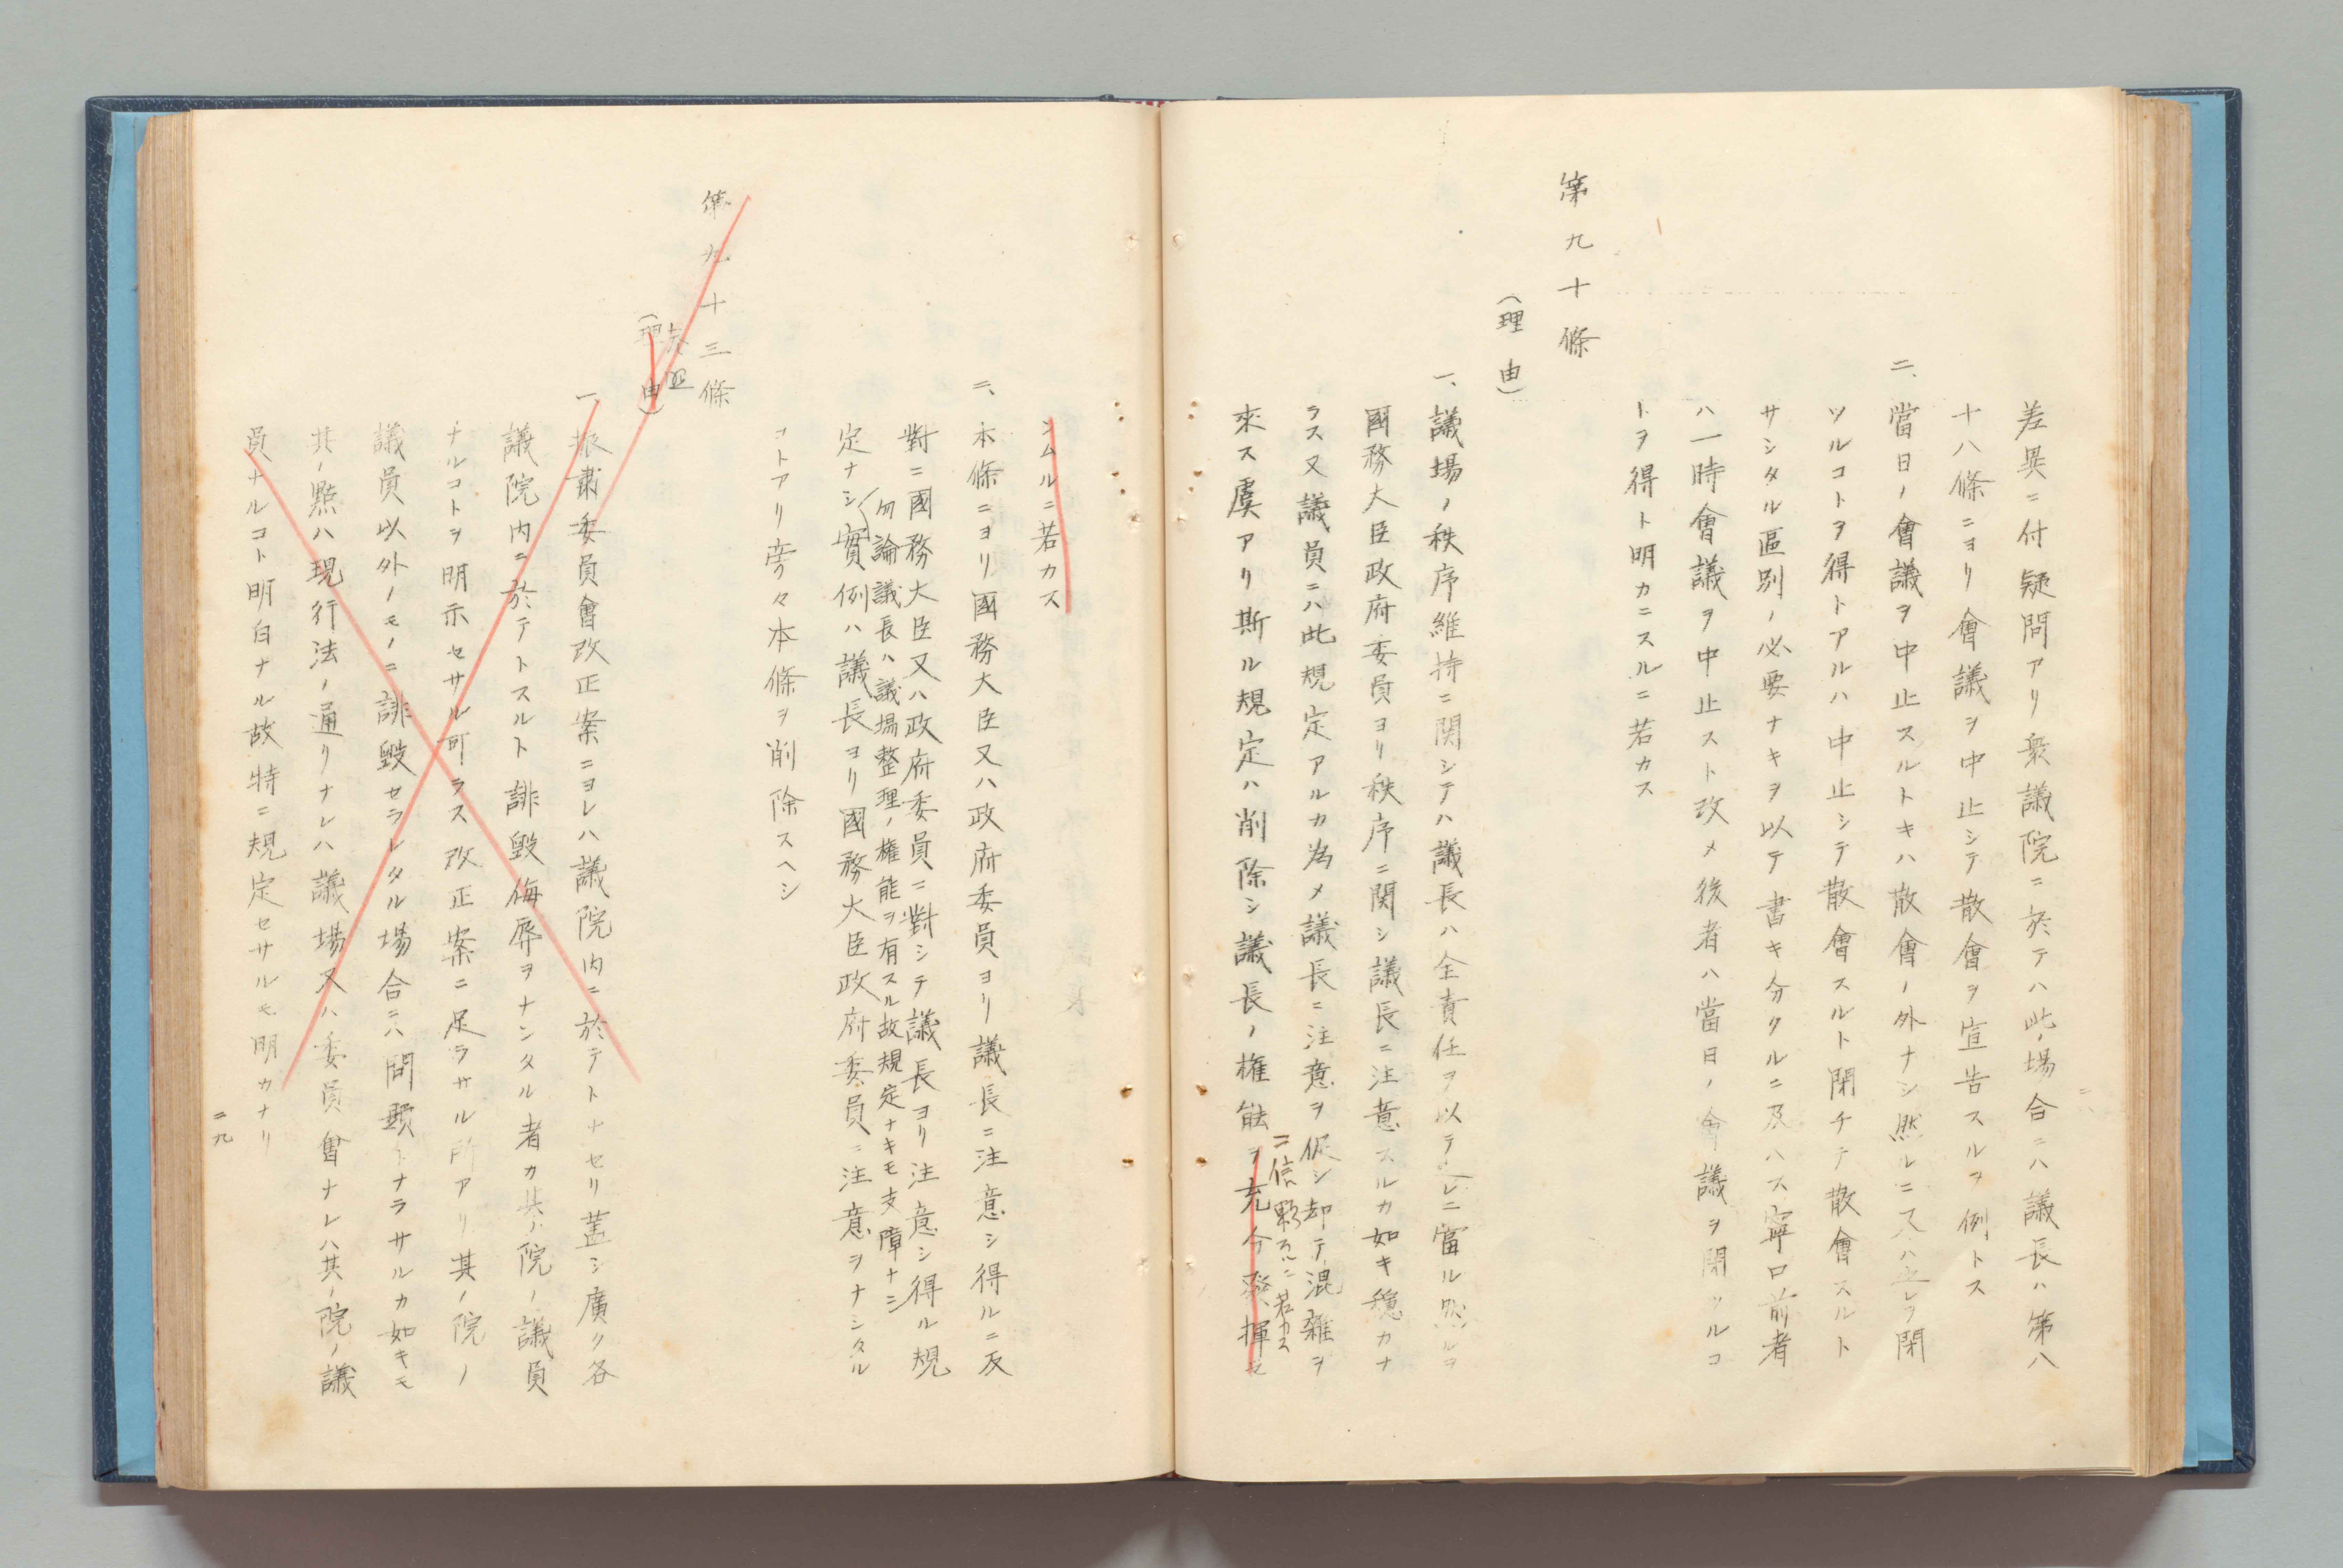 差異ニ付疑問アリ衆議院ニ於テハ此ノ場合ニハ議長ハ第八
十八條ニヨリ會議ヲ中止シテ散會ヲ宣告スルヲ例トス
二、當日ノ會議ヲ中止スルトキハ散會ノ外ナシ然ルニ又ハ之レヲ閉
ツルコトヲ得トアルハ中止シテ散會スルト閉チテ散會スルト
サシタル區別ノ必要ナキヲ以テ書キ分クルニ及ハス寧ロ前者
ハ一時會議ヲ中止スト改メ後者ハ當日ノ會議ヲ閉ツルコ
トヲ得ト明カニスルニ若カス
第九十條
(理由)
一、議場ノ秩序維持ニ関シテハ議長ハ全責任ヲ以テ之レニ當ル然ルヲ
國務大臣政府委員ヨリ秩序ニ関シ議長ニ注意スルカ如キ穏カナ
ラス又議員ニハ此規定アルカ為メ議長ニ注意ヲ促シ却テ混雑ヲ
來ス虞アリ斯ル規定ハ削除シ議長ノ権能ヲ充分発揮セ
ニ信頼スルニ若カス
シムルニ若カス
二、本條ニヨリ國務大臣又ハ政府委員ヨリ議長ニ注意シ得ルニ反
對ニ國務大臣又ハ政府委員ニ對シテ議長ヨリ注意シ得ル規
定ナシ實例ハ議長ヨリ國務大臣政府委員ニ注意ヲナシタル
勿論議長ハ議場整理ノ権能ヲ有スル故規定ナキモ支障ナシ
コトアリ旁々本條ヲ削除スヘシ
第九十三條
(理由)
一、振肅委員會改正案ニヨレハ議院内ニ於テトナセリ蓋シ廣ク各
議院内ニ於テトスルト誹毀侮辱ヲナシタル者カ其ノ院ノ議員
ナルコトヲ明示セサル可ラス改正案ニ足ラサル所アリ其ノ院ノ
議員以外ノモノニ誹毀セラレタル場合ニハ問題トナラサルカ如キモ
其ノ點ハ現行法ノ通リナレハ議場又ハ委員會ナレハ其ノ院ノ議
員ナルコト明白ナル故特ニ規定セサルモ明カナリ
二九